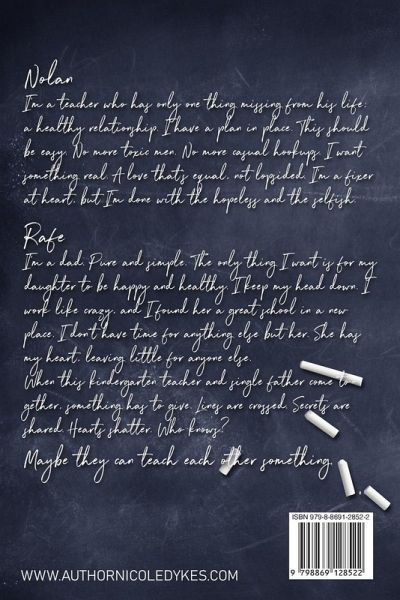 Nolan
I'm a teacher who has only one thing missing from his life:
a healthy relationship. I have a plan in place. This should
be easy. No more toxic men. No more casual hookups. I want
something real. A love that's equal, not lopsided. I'm a fixer
at heart, but I'm done with the hopeless and the selfish.
Rafe
I'm a dad. Pure and simple. The only thing I want is for my
daughter to be happy and healthy. I keep my head down. I
work like crazy, and I found her a great school in a new
place. I don't have time for anything else but her. She has
my heart, leaving little for anyone else.
When this kindergarten teacher and single father come to
gether, something has to give. Lines are crossed. Secrets are
shared. Hearts shatter. Who knows?
Maybe they can teach each other something.
ISBN 979-8-8691-2852-2
9 798869 128522
WWW.AUTHORNICOLEDYKES.COM